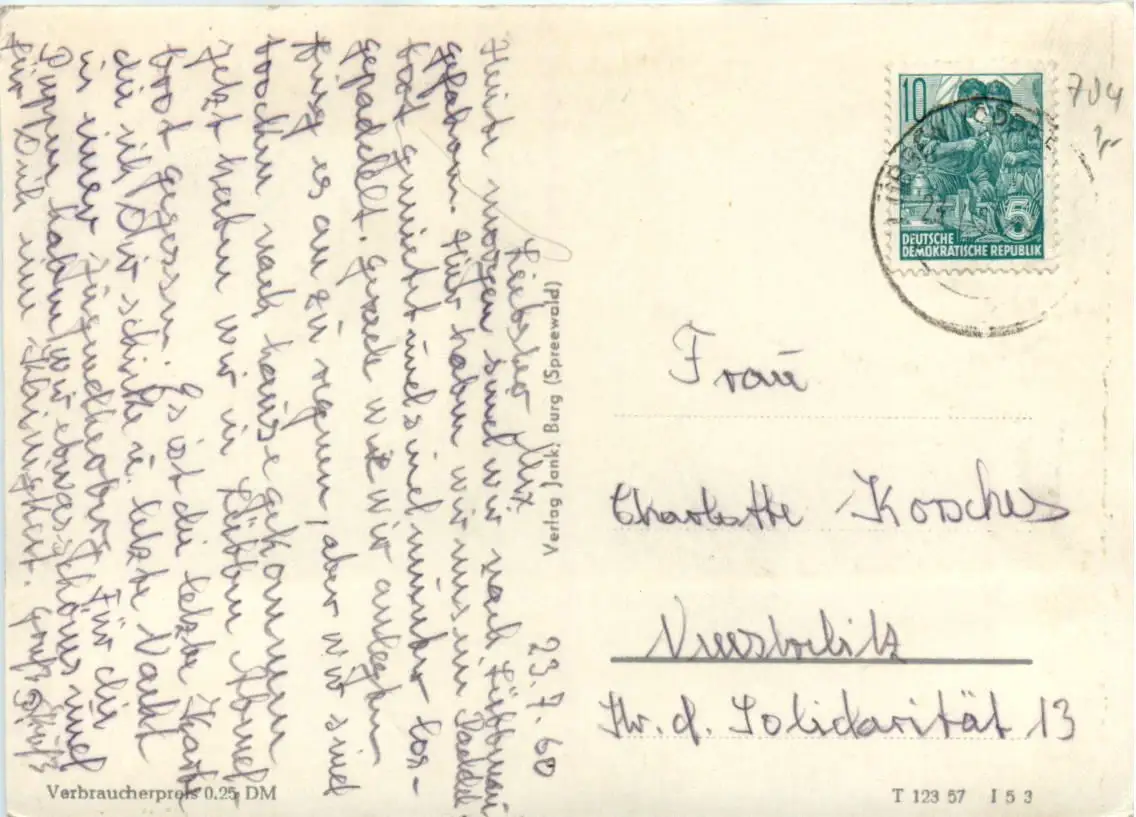 23.7.60
Liebster Mux
Heute morgen sind wir nach Lübbenau
gefahren. Hier haben wir uns ein Paddel
boot gemietet und sind munter los-
gepaddelt. gerade wie wir anlegten
fing es an zu regnen, aber wir sind
trocken nach hause gekommen
Jetzt haben wir in Lübben Abend
brot gegessen. Es ist die letzte Karte
die ich Dir schicke u. letzte Nacht
in einer Jugendherberg. Für die
Puppen haben wir etwas Schönes und
für Dich eine Kleinigkeit. Gruß
Verlag Jank, Burg (Spreewald)
Verbraucherpreis 0.25 DM
10
5
DEUTSCHE
DEMOKRATISCHE REPUBLIK
704
Frau
Charlotte
Str. d. Solidarität 13
T 123 57 I 5 3